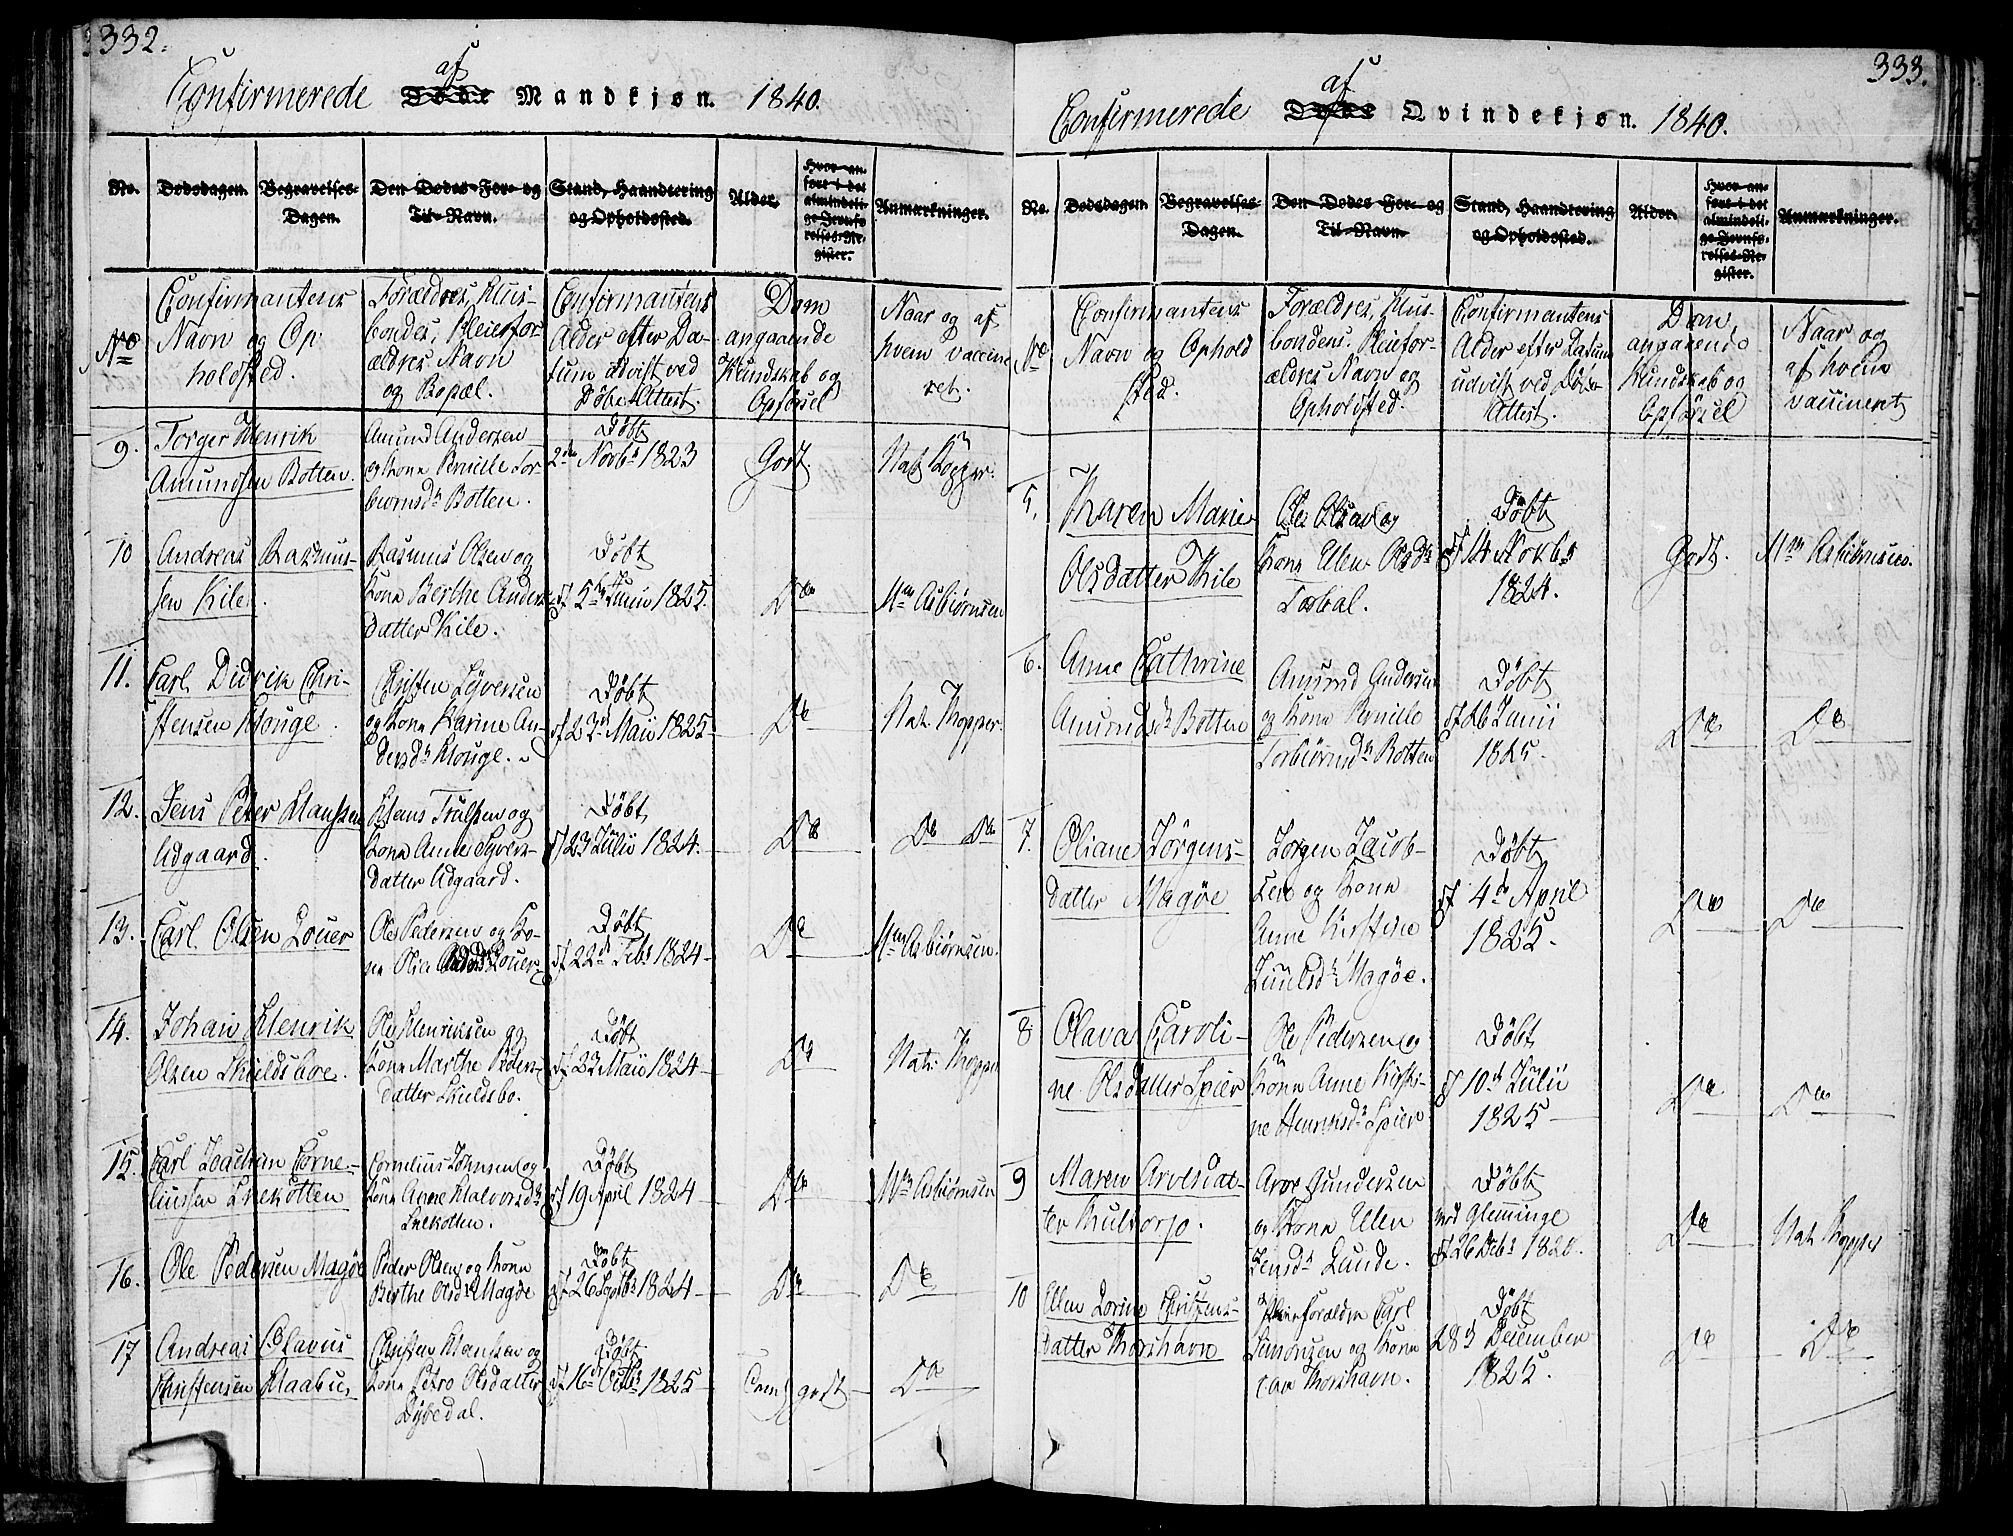 332.
Confirmerede af Døde Mandkjøn. 1840.
No. Dødsdagen. Begravelses-Dagen. Den Dødes For- og Til-Navn. Stand, Haandtering og Opholdssted. Alder. Hvor anført i det almindelige Jevnførelses-Register. Anmærkninger.
No
Confirmantens
Navn og Op-
holdsted.
Forældres, Huus-
bondes, Pleiefor-
ældres Navn
og Bopæl.
Confirmantens
Alder efter Da-
tum udvist ved
Døbe-Attest.
Dom
angaaende
Kundskab og
Opførsel
Naar og af
hvem vaccine-
ret.
9.
Torger Henrik
Amundsen Botten.
Amund Andersen
og Kone Pernille Tor-
biørnsdr Botten.
Døbt
2den Novbr 1823
Godt
Nat. Kopper.
10
Andreas Rasmus-
sen Kile.
Rasmus Olsen og
Kone Berthe Anders-
datter Kile.
Døbt
d. 5te Junii 1825.
Do
Mm Asbiørnsen
11.
Carl Didrik Chri-
stensen Houge.
Christen Syversen
og Kone Karine An-
dersdr Houge.
Døbt
d. 23de Maii 1825
Do
Nat. Kopper.
12.
Jens Peter Hanssen
Adgaard.
Hans Trulssen og
Kone Anne Syvers-
datter Adgaard.
Døbt
d. 23 Julii 1824.
Do
Do Do
13.
Carl Olsen Louer
Ole Pedersen og Ko-
ne Olia Louer
Døbt
d. 22de Febr 1824
Do
Mm Asbiørnsen.
14.
Johan Henrik
Olsen Skieldsboe.
Ole Henriksen og
Kone Marthe Peders-
datter Skieldsbo.
Døbt
d. 23 Maii 1824
Do
Nat. Kopper
15.
Carl Joachim Corne-
liussen Snekotten
Cornelius Johnsen og
Kone Anne Halvorsdr
Snekotten.
Døbt
d. 19 April 1824
Do
Mm Asbiørnsen
16.
Ole Pedersen Magøe
Peder Olsen og Kone
Berthe Olsdr Magøe
Døbt
d. 26 Septbr 1824
Do
Do
17
Andreas Olavus
Christensen
Christen Hansen og
Kone Petro Olsdatter
Dybedal.
Døbt
d. 16 Octbr 1825
godt
Do
333.
Confirmerede af Døde Qvindekjøn. 1840.
No. Dødsdagen. Begravelses-Dagen. Den Dødes For- og Til-Navn. Stand, Haandtering og Opholdssted. Alder. Hvor anført i det almindelige Jevnførelses-Register. Anmærkninger.
No
Confirmantens
Navn og Ophold
sted.
Forældres, Huus-
bondens, Pleiefor-
ældres Navn og
Opholdsted.
Confirmantens
Alder efter Datum
udvist ved Døbe
Attest.
Dom,
angaaende
Kundskab og
Opførsel
Naar og
af hvem
vaccineret
5.
Karen Marie
Olsdatter Kile
Ole Olsen og
Kone Ellen Olsdr
Torbal.
Døbt
d. 14 Novbr
1824.
Godt.
Mm Asbiørnsen.
6.
Anne Cathrine
Amundsdr Botten
Amund Andersen
og Kone Pernille
Torbiørnsdr Botten
Døbt
d. 26 Junii
1825.
Do
Do
7.
Oliane Jørgens-
datter Magøe
Jørgen Jacob-
sen og Kone
Anne Kirstine
Juulsdr Magøe.
Døbt
d. 4de April
1825.
Do
Do
8
Olava Caroli-
ne Olsdatter Spier
Ole Pedersen og
Kone Anne Kirsti-
ne Henriksdr Spier
Døbt
d. 10de Julii
1825
Do
Do
9
Maren Arvesdat-
ter Hultorp.
Arve Gundersen
og Kone Ellen
Jensdr Lunde.
Døbt
ved Glemminge
d. 26 Debr 1820.
Do
Nat. Kopper
10
Ellen Lorine Christens-
datter Thorshavn
Pleieforældre Carl
Simonsen og Kone
Thorshavn.
Døbt
28de December
1825.
Do
Do